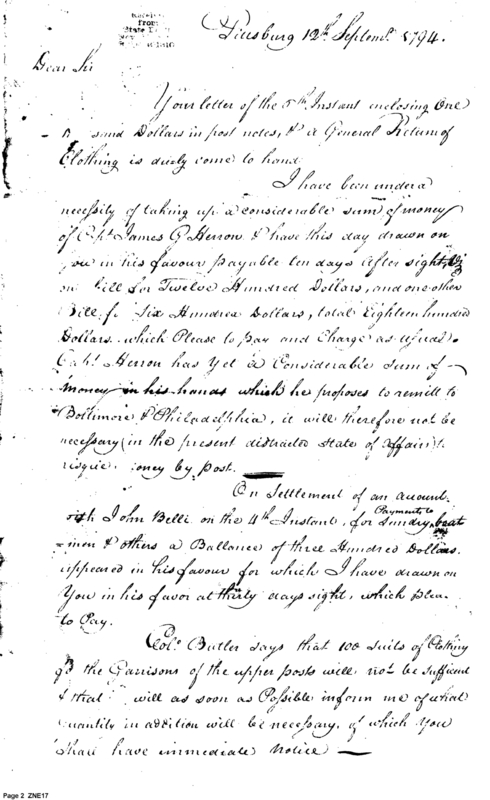 Received
from
State
Pittsburg 12th. Septemr. 1794.
Dear Sir
Your letter of the 5th. Instant enclosing One
sand Dollars in post notes, & a General Return of
Clothing is duely come to hand
I have been under a
necessity of taking up a considerable sum of money
of Capt. James G Herron & have this day drawn on
you in his favour payable ten days after sight, Viz
on Bill for Twelve Hundred Dollars, and one other
Bill for Six Hundred Dollars, total Eighteen hundred
Dollars. which Please to pay and Charge as Usual.
Capt. Herron has Yet a Considerable sum of
money in his hands which he proposes to remitt to
Boltimore & Philadelphia, it will therefore not be
necessary (in the present distracted state of affairs) t
risque oney by post.
On Settlement of an acount
with John Belli on the 4th Instant, for Payments to Sundry boat
men & others a Ballance of three Hundred Dollars.
appeared in his favour for which I have drawn on
You in his favor at thirty days sight, which
to Pay.
Colo. Butler says that 100 suits of Clothing
the Garrisons of the upper posts will not be sufficient
& that will as soon as Possible inform me of what
quantity in addition will be necessary, of which You
Shall have immediate Notice —
Page 2 ZNE17